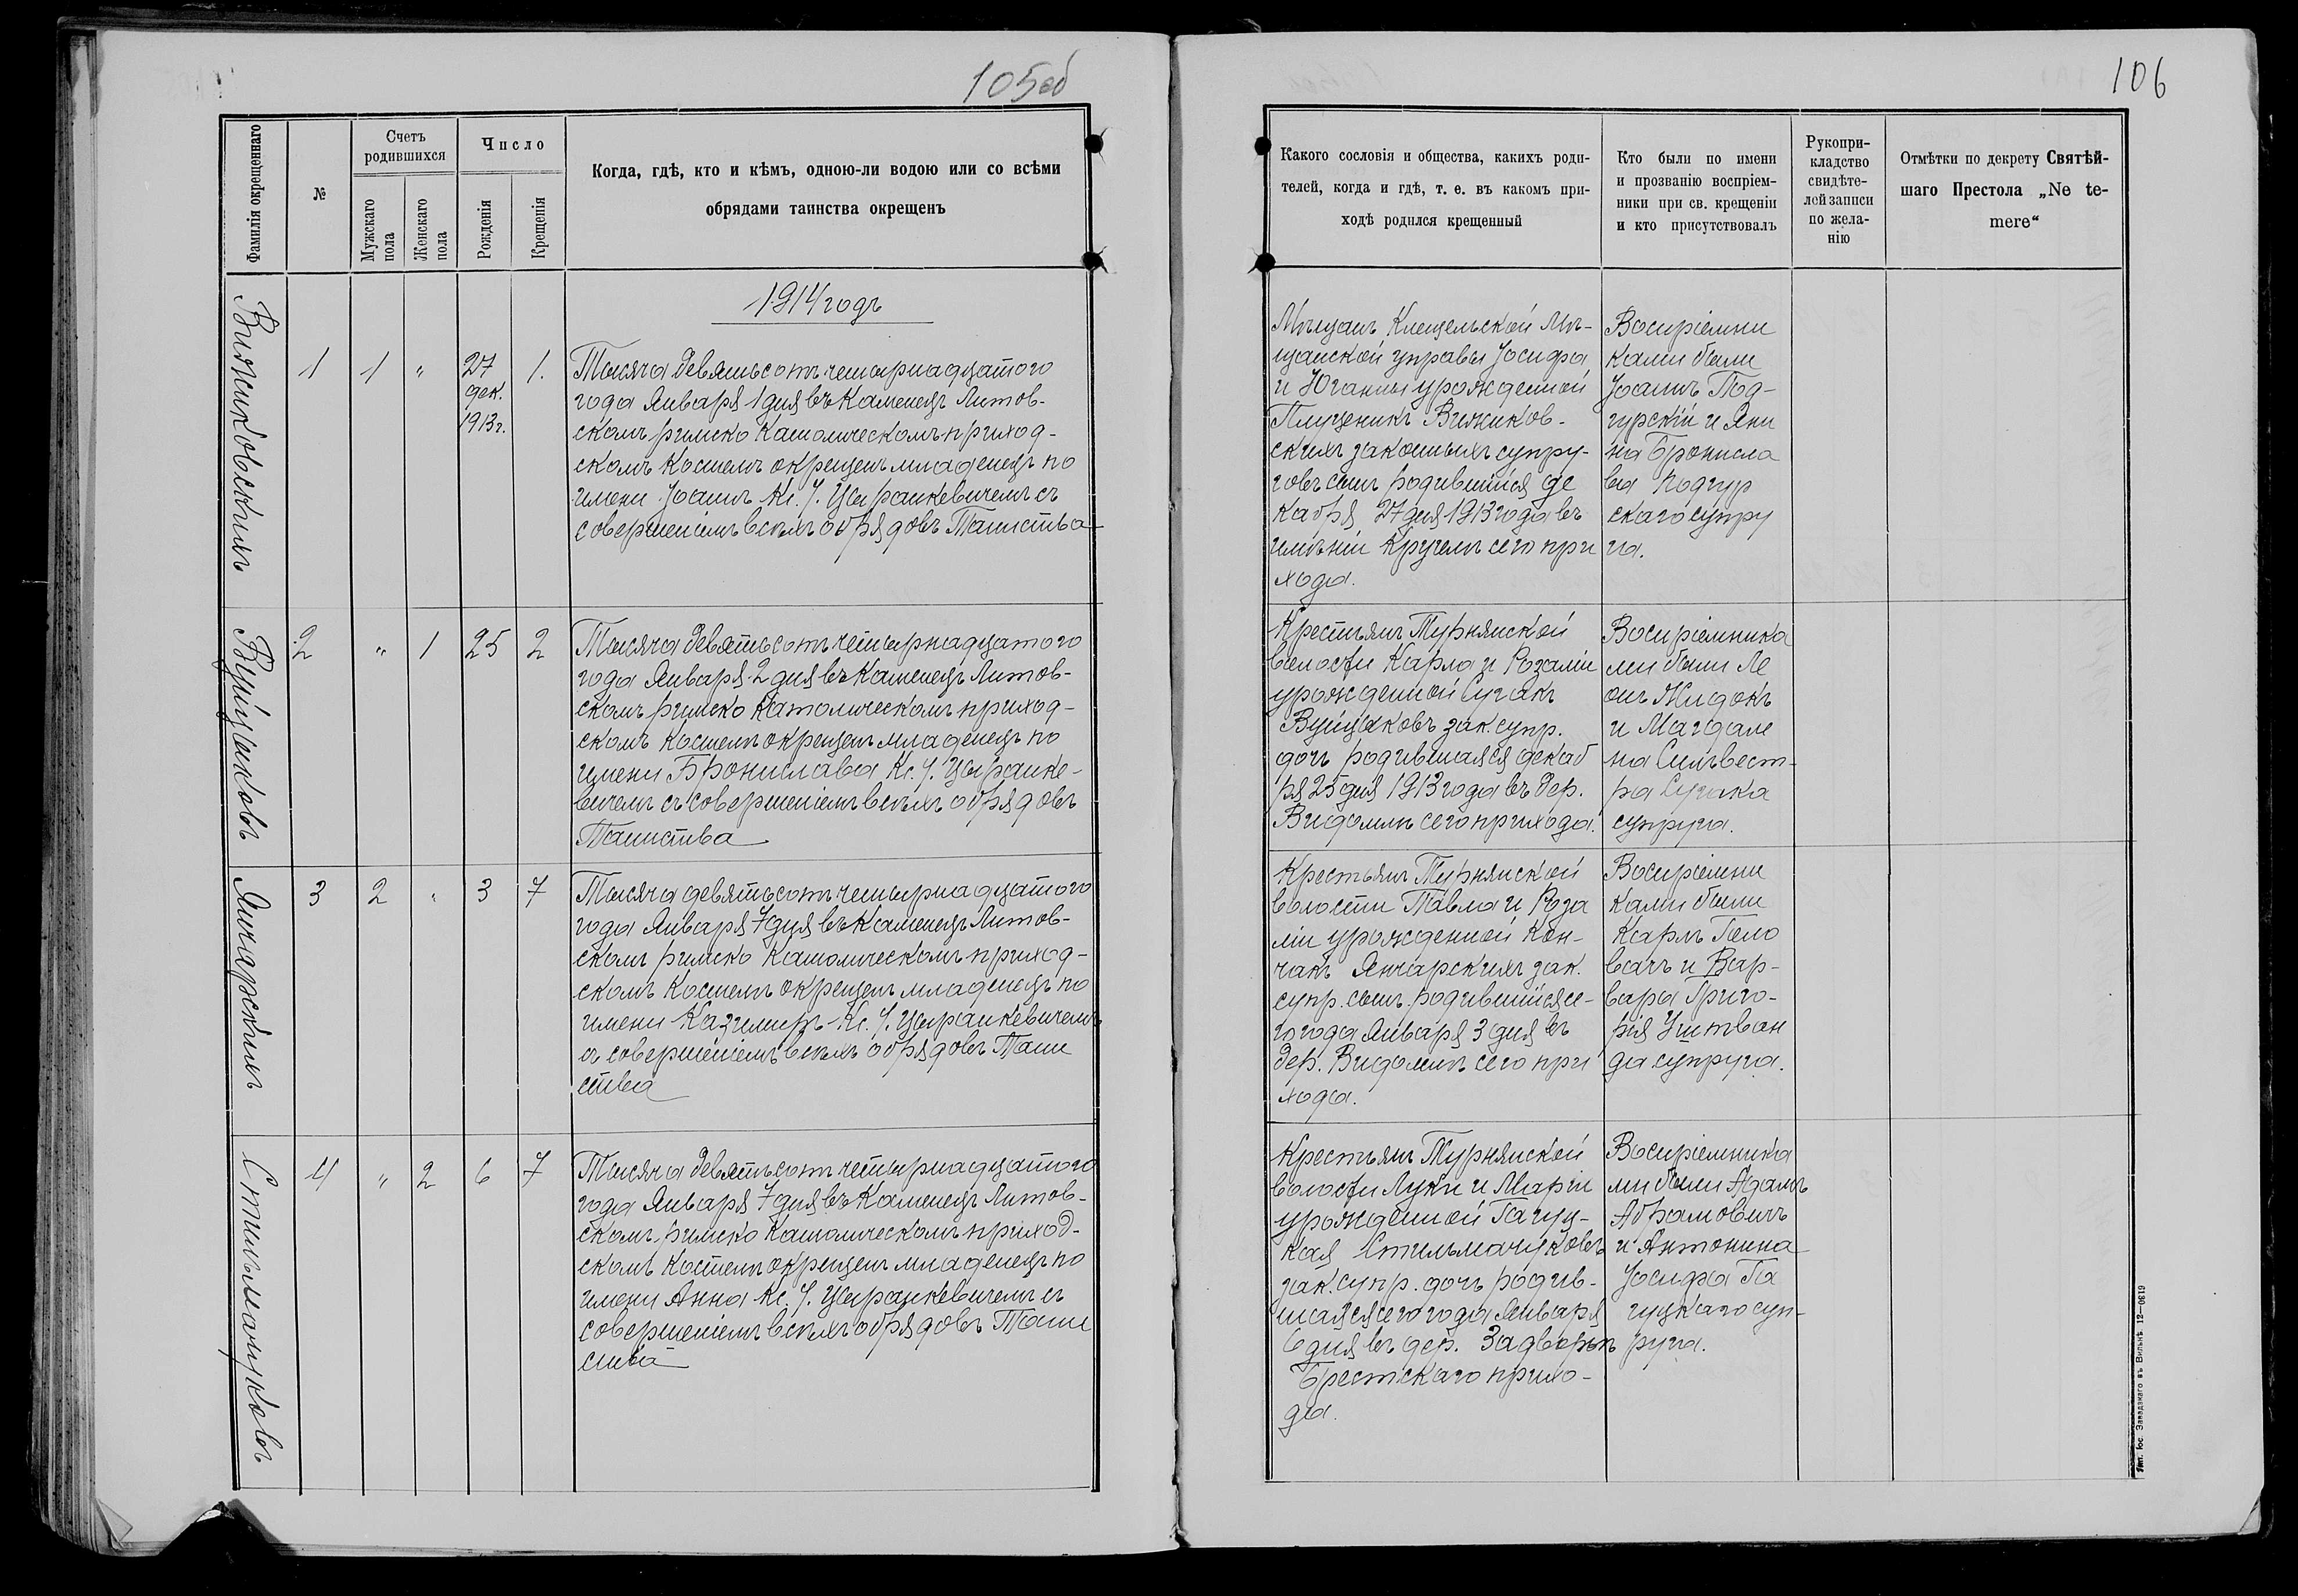 105 об
Фамилія окрещеннаго
№
Счетъ
родившихся
Мужскаго
пола
Женскаго
пола
Число
Рожденія
Крещенія
Когда, гдѣ, кто и кѣмъ, одною-ли водою или со всѣми
обрядами таинства окрещенъ
1914 годъ
Вижиковскихъ
1
1
"
27
дек.
1913г.
1.
Тысяча девятьсотъ четырнадцатого
года Января 1 дня въ Каменецъ Литов-
скомъ римско Католическомъ приход-
скомъ Костелѣ окрещенъ младенецъ по
имени Іоаннъ Кс. І. Цыранкевичемъ съ
совершеніемъ всѣхъ обрядовъ Таинства
Вуйцыковъ
2
"
1
25
2
Тысяча девятьсотъ четырнадцатого
года Января 2 дня въ Каменецъ Литов-
скомъ римско Католическомъ приход-
скомъ Костелѣ окрещенъ младенецъ по
имени Брониславы Кс. І. Цыранке-
вичемъ съ совершеніемъ всѣхъ обрядовъ
Таинства
Янчарскихъ
3
2
"
3
7
Тысяча девятьсотъ четырнадцатого
года Января 7 дня въ Каменецъ Литов-
скомъ римско Католическомъ приход-
скомъ Костелѣ окрещенъ младенецъ по
имени Казимиръ Кс. І. Цыранкевичемъ
съ совершеніемъ всѣхъ обрядовъ Таин
ства
Стильмащуковъ
4
"
2
6
7
Тысяча девятьсотъ четырнадцатого
года Января 7 дня въ Каменецъ Литов-
скомъ римско Католическомъ приход-
скомъ Костелѣ окрещенъ младенецъ по
имени Анна Кс. І. Цыранкевичемъ съ
совершеніемъ всѣхъ обрядовъ Таин
ства
106
Какого сословія и общества, какихъ роди-
телей, когда и гдѣ, т. е. въ какомъ при-
ходѣ родился крещенный
Кто были по имени
и прозванію воспріем-
ники при св. крещеніи
и кто присутствовалъ
Рукопри-
кладство
свидѣте-
лей записи
по жела-
нію
Отмѣтки по декрету Святѣй-
шаго Престола „Ne te-
mere“
Мѣщанъ Клещельской Мѣ-
щанской управы Іосифа
и Юганны урожденной
Плуценикъ Вижиков-
скихъ законныхъ супру-
говъ сынъ родившійся де
кабря 27 дня 1913 года въ
имѣніи Кругель сего при
хода.
Воспріемни
ками были
Іоаннъ Под-
гурскій и Яни
на Бронисла
ва Подгур
скаго супру
га.
Крестьянъ Турнянской
волости Карла и Розаліи
урожденной Сугакъ
Вуйцыковъ зак. супр.
дочь родившаяся декаб
ря 25 дня 1913 года въ дер.
Видомлѣ сего прихода.
Воспріемника
ми были Ле
онъ Жидокъ
и Магдале
на Сильвест-
ра Сугака
супруга.
Крестьянъ Турнянской
волости Павла и Роза
ліи урожденной Кон-
чакъ Янчарскихъ зак.
супр. сынъ родившійся се-
го года Января 3 дня въ
дер. Видомлѣ сего при
хода.
Воспріемни
ками были
Карлъ Голо
вачъ и Вар-
вара Григо-
рія
да супруга.
Крестьянъ Турнянской
волости Луки и Маріи
урожденной Гагуц-
кая Стильмащуковъ
зак. супр. дочь родив-
шаяся сего года Января
6 дня въ дер. Задворъѣ
Брестскаго прихо-
да.
Воспріемника
ми были Адамъ
Абрамовичъ
и Антонина
Іосифа Га
гуцкаго суп-
руга.
Тип. Іос. Завадзкаго въ Вильнѣ. 12—0619